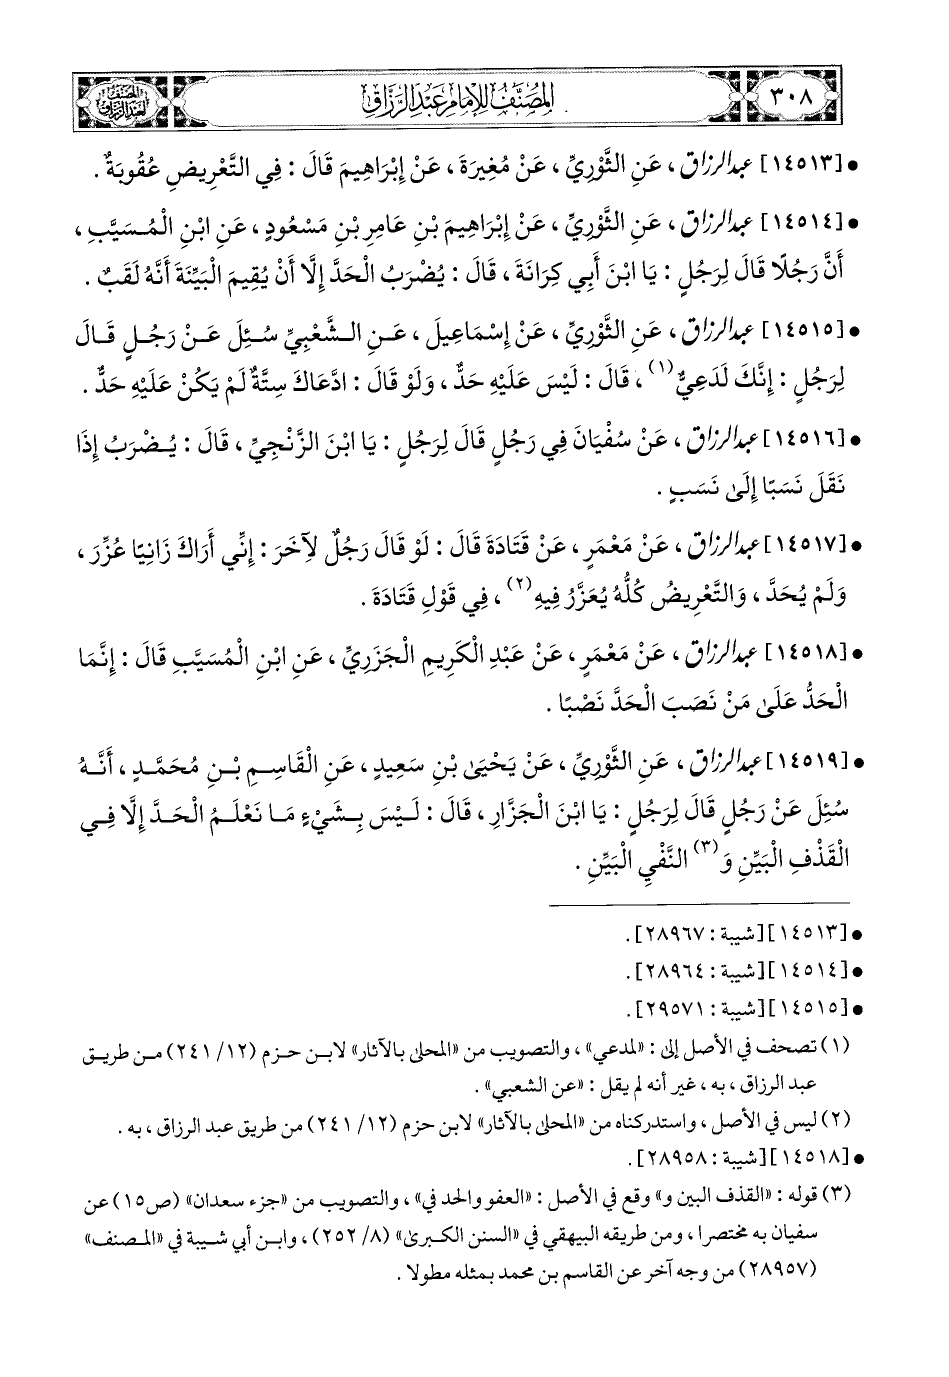 ٣٠٨
المصنف للإمام عبد الرزاق
المصنف لعبد الرزاق
• [١٤٥١٣] عبد الرزاق، عَنِ الثَّوْرِيِّ، عَنْ مُغِيرَةَ، عَنْ إِبْرَاهِيمَ قَالَ: فِي التَّعْرِيضِ عُقُوبَةٌ.
• [١٤٥١٤] عبد الرزاق، عَنِ الثَّوْرِيِّ، عَنْ إِبْرَاهِيمَ بْنِ عَامِرِ بْنِ مَسْعُودٍ، عَنِ ابْنِ الْمُسَيَّبِ،
أَنَّ رَجُلًا قَالَ لِرَجُلٍ: يَا ابْنَ أَبِي كِرَانَةَ، قَالَ: يُضْرَبُ الْحَدَّ إِلَّا أَنْ يُقِيمَ الْبَيِّنَةَ أَنَّهُ لَقَبٌ.
• [١٤٥١٥] عبد الرزاق، عَنِ الثَّوْرِيِّ، عَنْ إِسْمَاعِيلَ، عَنِ الشَّعْبِيِّ سُئِلَ عَنْ رَجُلٍ قَالَ
لِرَجُلٍ: إِنَّكَ لَدَعِيٌّ(١)، قَالَ: لَيْسَ عَلَيْهِ حَدٌّ، وَلَوْ قَالَ: ادَّعَاكَ سِتَّةٌ لَمْ يَكُنْ عَلَيْهِ حَدٌّ.
• [١٤٥١٦] عبد الرزاق، عَنْ سُفْيَانَ فِي رَجُلٍ قَالَ لِرَجُلٍ: يَا ابْنَ الزَّنْجِيِّ، قَالَ: يُضْرَبُ إِذَا
نَقَلَ نَسَبًا إِلَىٰ نَسَبٍ.
• [١٤٥١٧] عبد الرزاق، عَنْ مَعْمَرٍ، عَنْ قَتَادَةَ قَالَ: لَوْ قَالَ رَجُلٌ لِآخَرَ: إِنِّي أَرَاكَ زَانِيًا عُزِّرَ،
وَلَمْ يُحَدَّ، وَالتَّعْرِيضُ كُلُّهُ يُعَزَّرُ فِيهِ(٢)، فِي قَوْلِ قَتَادَةَ.
• [١٤٥١٨] عبد الرزاق، عَنْ مَعْمَرٍ، عَنْ عَبْدِ الْكَرِيمِ الْجَزَرِيِّ، عَنِ ابْنِ الْمُسَيَّبِ قَالَ: إِنَّمَا
الْحَدُّ عَلَىٰ مَنْ نَصَبَ الْحَدَّ نَصْبًا.
• [١٤٥١٩] عبد الرزاق، عَنِ الثَّوْرِيِّ، عَنْ يَحْيَىٰ بْنِ سَعِيدٍ، عَنِ الْقَاسِمِ بْنِ مُحَمَّدٍ، أَنَّهُ
سُئِلَ عَنْ رَجُلٍ قَالَ لِرَجُلٍ: يَا ابْنَ الْجَزَّارِ، قَالَ: لَيْسَ بِشَيْءٍ مَا نَعْلَمُ الْحَدَّ إِلَّا فِي
الْقَذْفِ الْبَيِّنِ وَ(٣) النَّفْيِ الْبَيِّنِ.
• [١٤٥١٣] [شيبة: ٢٨٩٦٧].
• [١٤٥١٤] [شيبة: ٢٨٩٦٤].
• [١٤٥١٥] [شيبة: ٢٩٥٧١].
(١) تصحف في الأصل إلى: «لمدعي»، والتصويب من «المحلى بالآثار» لابن حزم (١٢/ ٢٤١) من طريق
عبد الرزاق، به، غير أنه لم يقل: «عن الشعبي».
(٢) ليس في الأصل، واستدركناه من «المحلى بالآثار» لابن حزم (١٢/ ٢٤١) من طريق عبد الرزاق، به.
• [١٤٥١٨] [شيبة: ٢٨٩٥٨].
(٣) قوله: «القذف البين و» وقع في الأصل: «العفو والحد في»، والتصويب من «جزء سعدان» (ص١٥) عن
سفيان به مختصرا، ومن طريقه البيهقي في «السنن الكبرىٰ» (٨/ ٢٥٢)، وابن أبي شيبة في «المصنف»
(٢٨٩٥٧) من وجه آخر عن القاسم بن محمد بمثله مطولا.